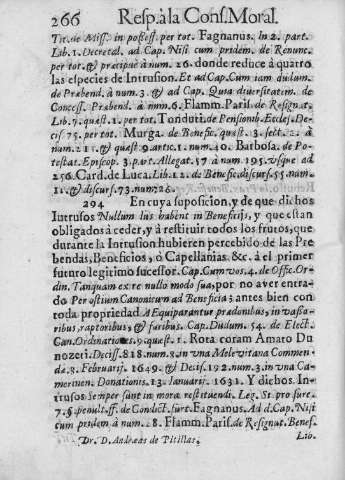 266 Resp. à la Cons. Moral.
Tit. de Miss. in possess. per tot. Fagnanus. In 2. part.
Lib. 1. Decretal. ad Cap. Nisi cum pridem. de Renunc.
per tot. & præcipuè à num. 26. donde reduce à quatro
las especies de Intrusion. Et ad Cap. Cum iam dudum.
de Præbend. à num. 3. & ad Cap. Quia diversitatem. de
Concess. Præbend. à num. 6. Flamm. Paris. de Resignat.
Lib. 7. quæst. 1. per tot. Tonduti. de Pensionib. Eccles. De-
cis. 75. per tot. Murga. de Benefic. quæst. 3. sect. 2. à
num. 211. & quæst 9. artic. 1. num. 40. Barbosa. de Po-
testat. Episcop. 3. part. Allegat. 57. à num. 195. vsque ad
256. Card. de Luca. Lib. 12. de Benefic. discurs. 55. num.
11. & discurs. 73. num. 26.
294 En cuya suposicion, y de que dichos
Intrusos Nullum Ius habent in Beneficijs, y que estan
obligados à ceder, y à restituir todos los frutos, que
durante la Intrusion hubieren percebido de las Pre
bendas, Beneficios, ò Capellanias. &c. à el primer
futuro legitimo sucessor. Cap. Cum vos. 4. de Offic. Or-
din. Tanquam ex re nullo modo sua, por no aver entra-
do Per ostium Canonicum ad Beneficia; antes bien con
toda propriedad Aequiparantur prædonibus, invaso-
ribus, raptoribus, & furibus. Cap. Dudum. 54. de Elect.
Can. Ordinationes. 9. quæst. 1. Rota coram Amato Du
nozeti. Deciss. 818. num. 8. in vna Melevitana Commen
dæ. 8. Februarij. 1649. & Decis. 192. num. 3. in vna Ca-
merinen. Donationis. 13. Ianuarij. 1631. Y dichos In-
trusos Semper sunt in moræ restituendi. Leg. Si pro sure.
7. §. penult. ff. de Condict. surt. Fagnanus. Ad d. Cap. Nisi
cum pridem à num. 28. Flamm. Paris. de Resignat. Benef.
Dr. D. Andræas de Pitillas. Lib.